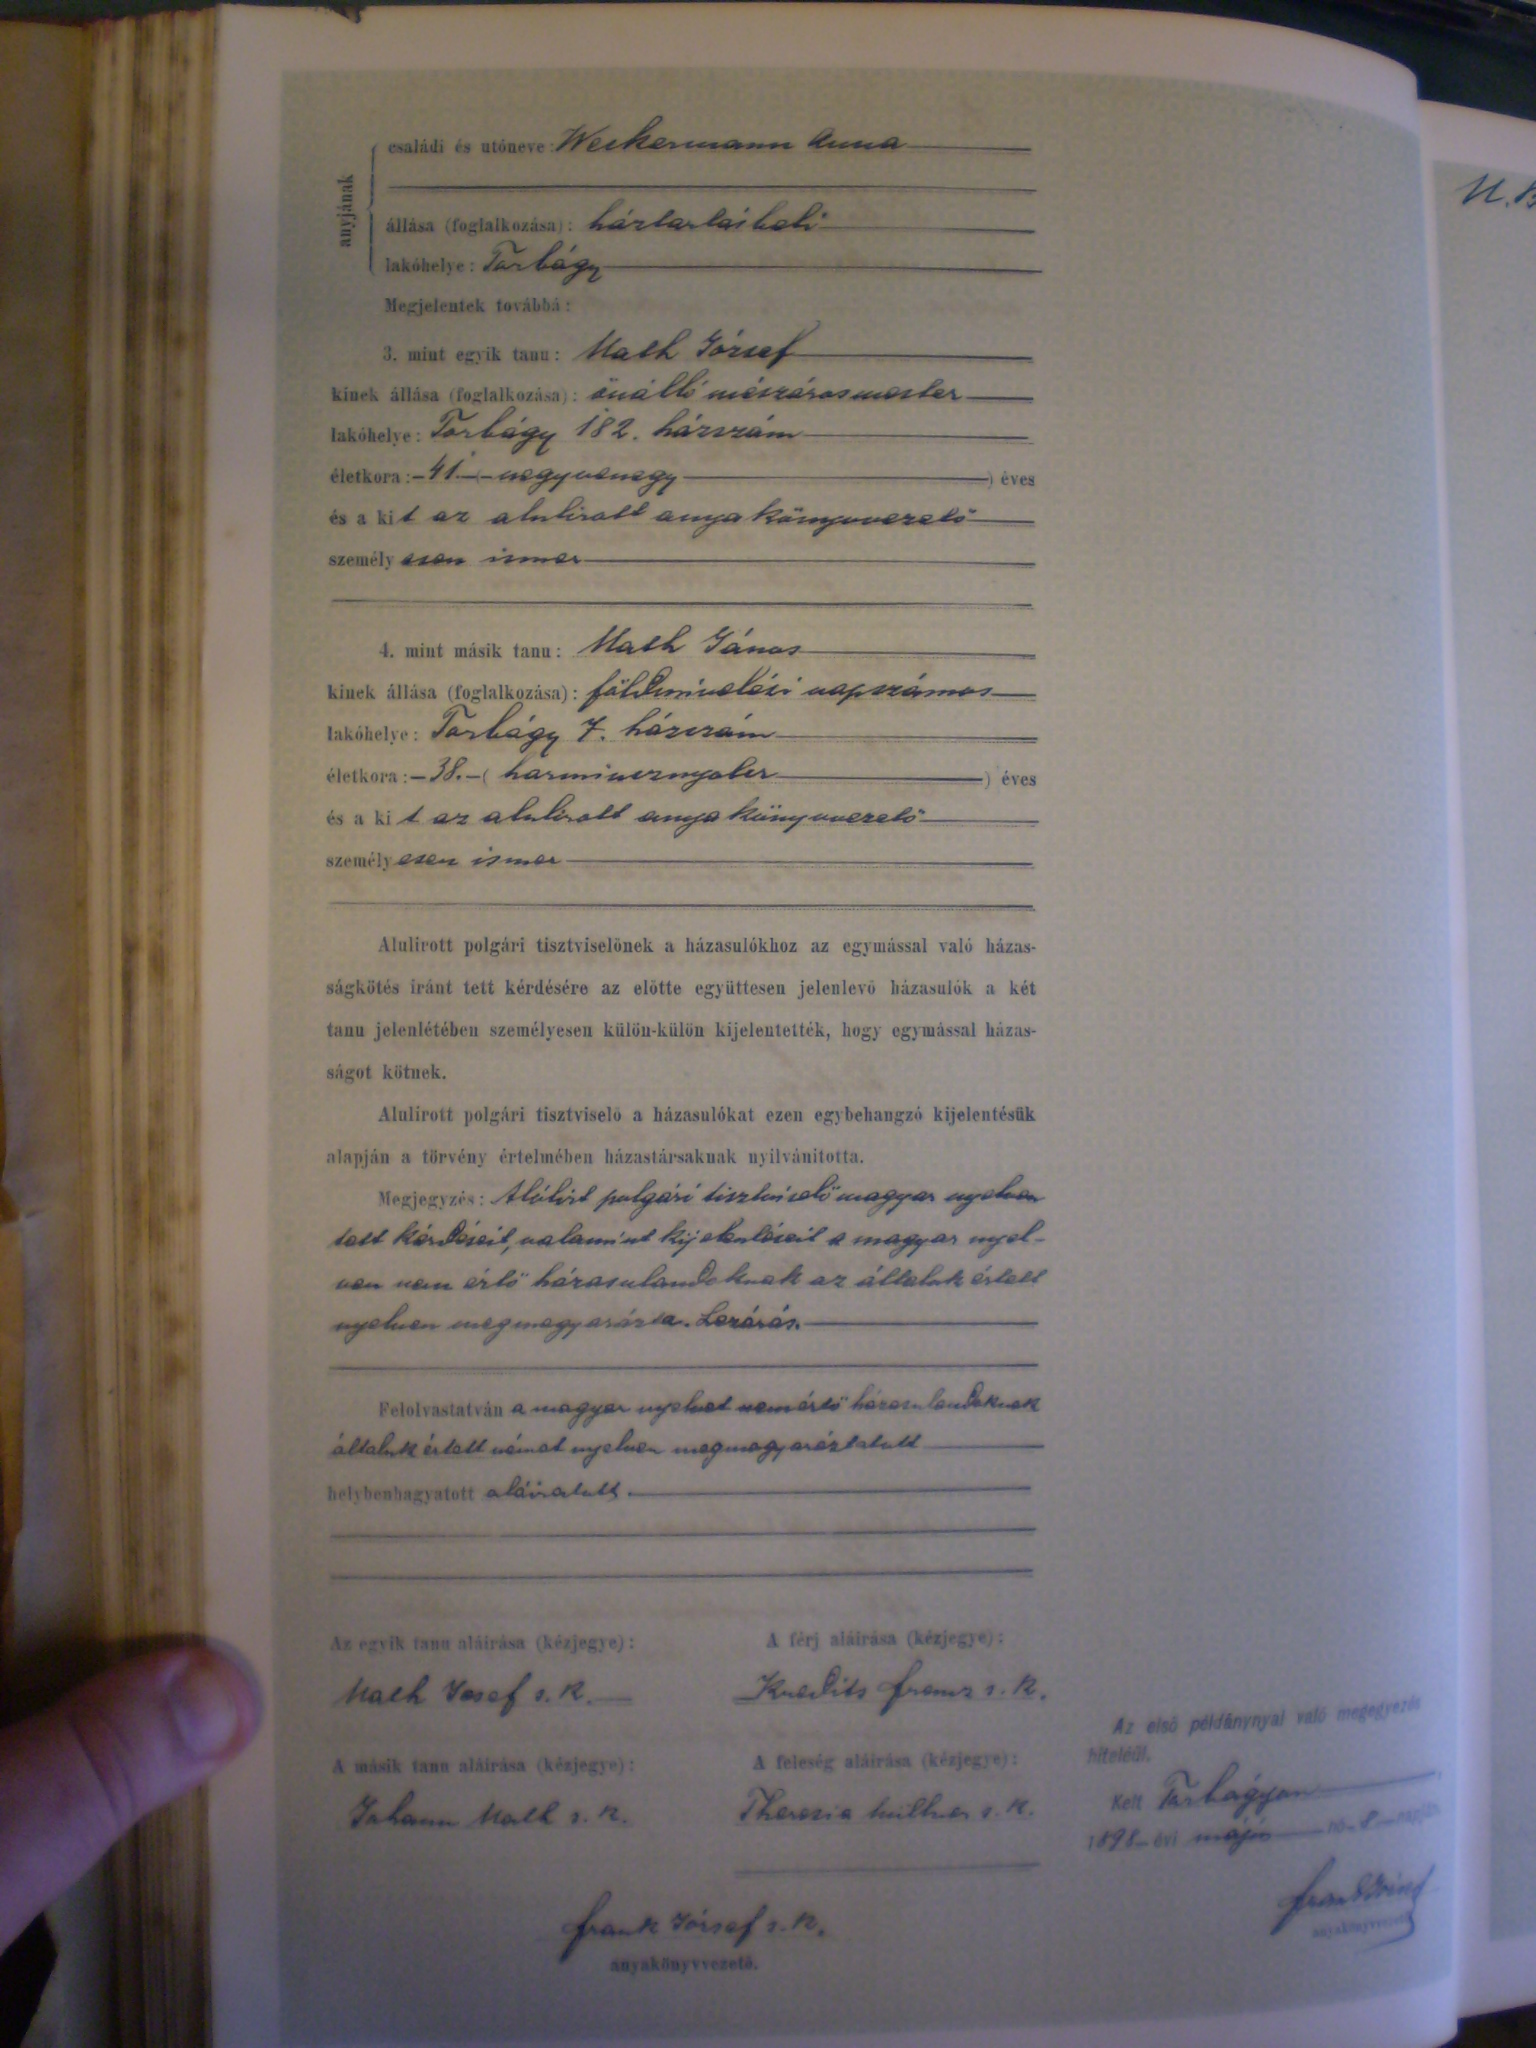 anyjának
családi és utóneve: Weckermann Anna
állása (foglalkozása): háztartásbeli
lakóhelye: Torbágy
Megjelentek továbbá:
3. mint egyik tanu: Math József
kinek állása (foglalkozása): önálló mészárosmester
lakóhelye: Torbágy 182. házszám
életkora: - 41 - (- negyvenegy ) éves
és a kit az alulirott anyakönyvvezető
személyesen ismer
4. mint másik tanu: Math János
kinek állása (foglalkozása): földmivelési napszámos
lakóhelye: Torbágy 7. házszám
életkora: - 38. - ( harmincznyolcz ) éves
és a kit az alulirott anyakönyvvezető
személyesen ismer
Alulirott polgári tisztviselőnek a házasulókhoz az egymással való házas-
ságkötés iránt tett kérdésére az előtte együttesen jelenlevő házasulók a két
tanu jelenlétében személyesen külön-külön kijelentették, hogy egymással házas-
ságot kötnek.
Alulirott polgári tisztviselő a házasulókat ezen egybehangzó kijelentésük
alapján a törvény értelmében házastársaknak nyilvánitotta.
Megjegyzés: Alólirt polgári tisztviselő magyar nyelven
tett kérdéseit, valamint kijelentéseit a magyar nyel-
ven nem értő házasulandoknak az általuk értett
nyelven megmagyarázta. Lezárás.
Felolvastatván a magyar nyelvet nem értő házasulandoknak
általuk értett német nyelven megmagyaráztatott
helybenhagyatott aláiratott.
Az egyik tanu aláirása (kézjegye): A férj aláirása (kézjegye):
Math Josef s. k. Kredits Franz s. k.
A másik tanu aláirása (kézjegye): A feleség aláirása (kézjegye):
Johann Math s. k. Theresia s. k.
Frank József s. k.
anyakönyvvezető.
Az első példánynyal való megegyezés
hiteléül.
Kelt Torbágyon
1898 - évi május hó - 8 - napján
Frank József
anyakönyvvezető